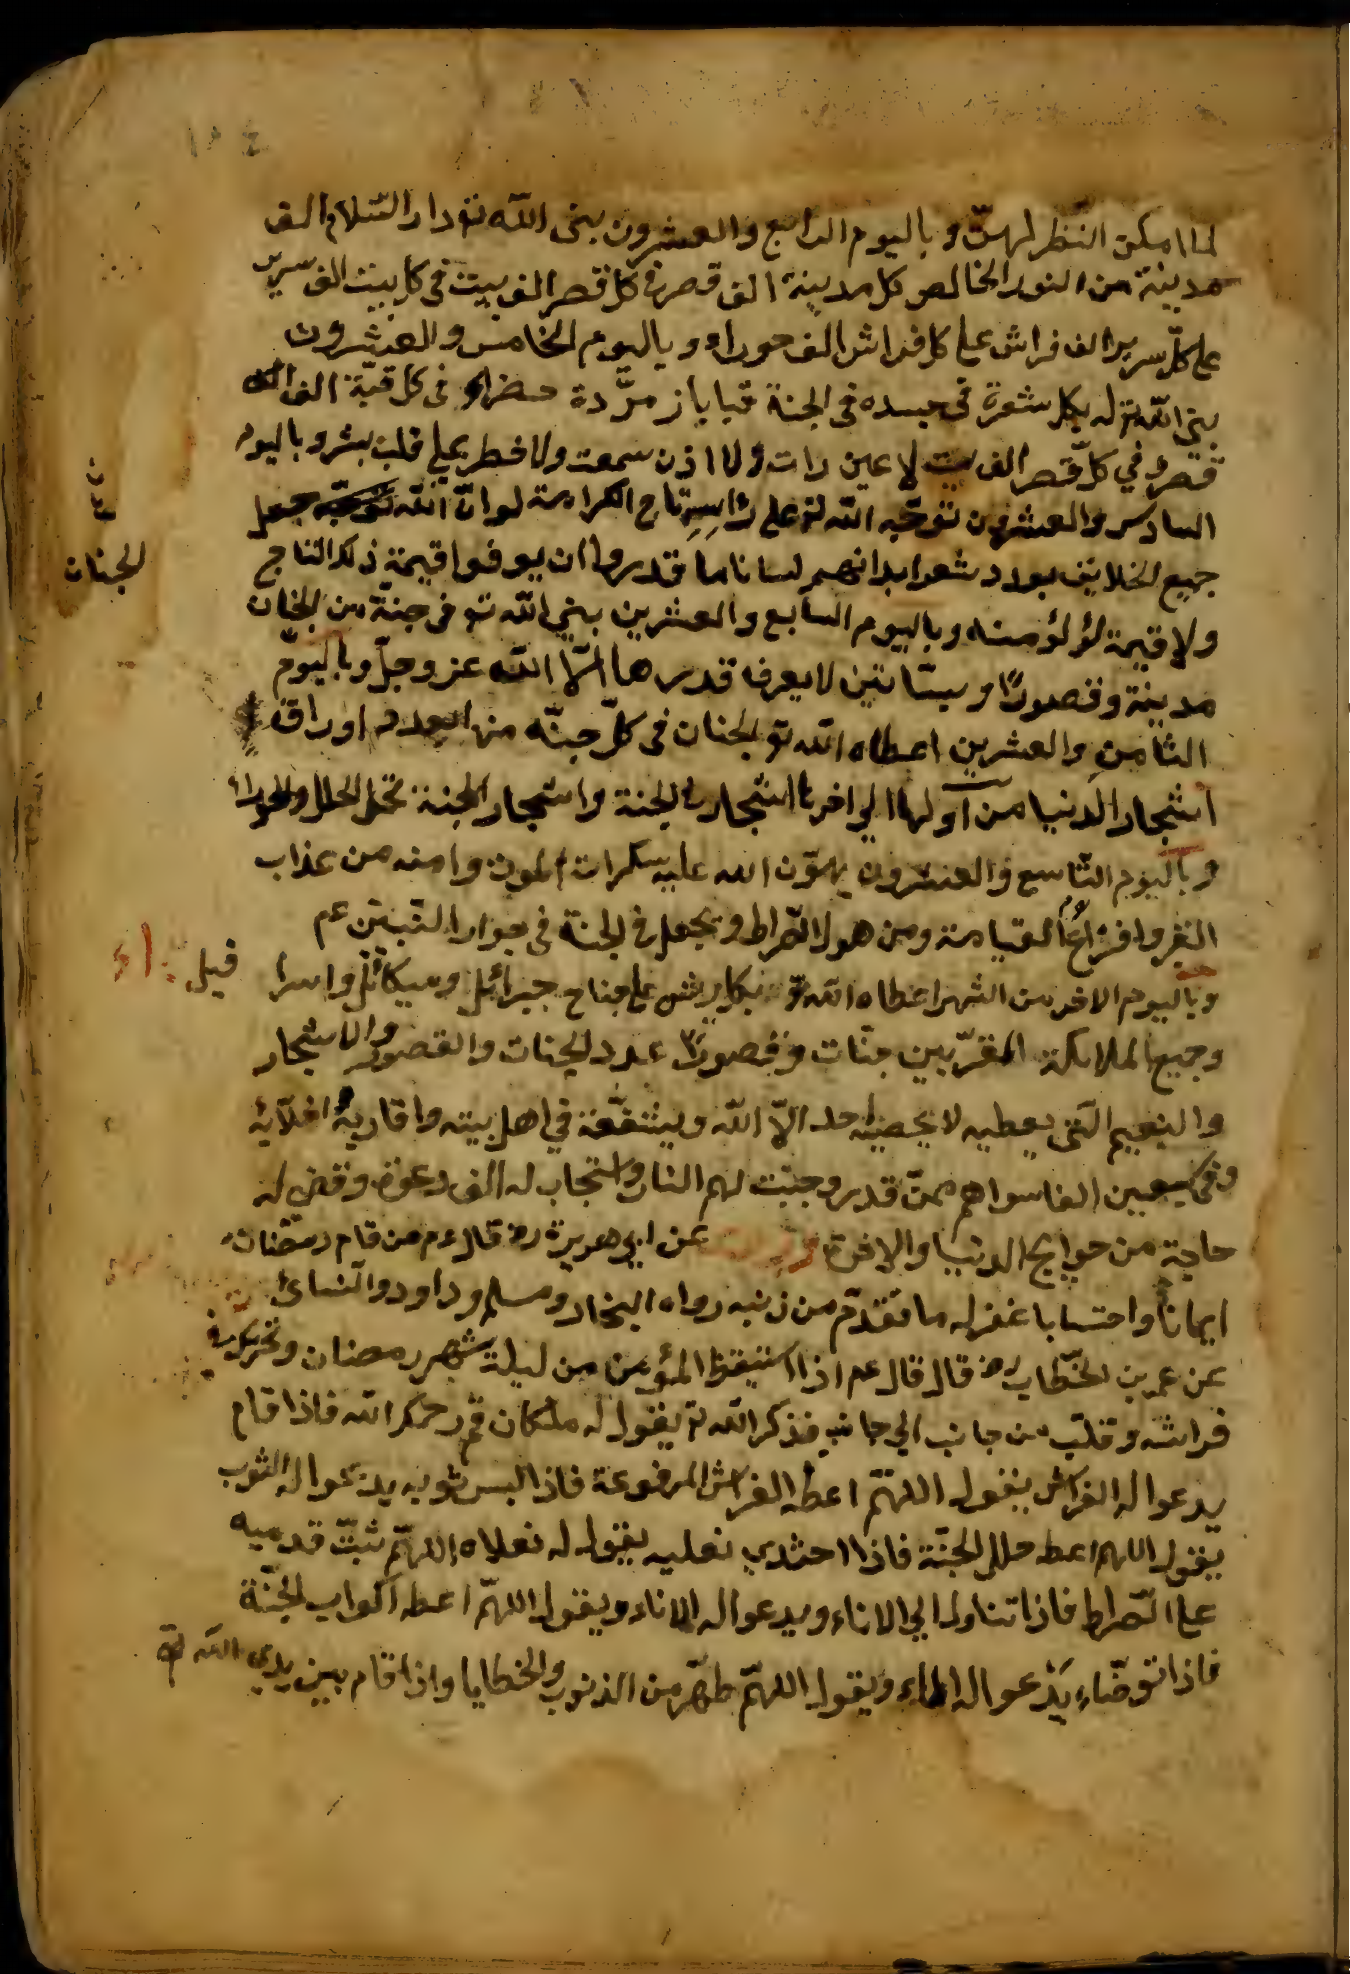 لما امكن النظر لهنّ وباليوم الرابع والعشرون بنى الله تو دار السّلام الف
مدينة من النور الخالص كل مدينة الف قصر في كل قصر الف بيت في كل بيت الف سرير
على كلّ سرير الف فراش على كل فراش الف حوراء وباليوم الخامس والعشرون
بنى الله تو له بكل شعرة في جسده في الجنة قبابا زمرّدة خضراء في كل قبّة الف الف
قصر وفي كلّ قصر الف بيت لا عين رات ولا اذن سمعت ولا خطر على قلب بشر وباليوم
السادس والعشرون توّجه الله تو على رأسه تاج الكرامة لو انّ الله جعل
جميع الخلايف بعدد شعر ابدانهم لسانا ما قدروا ان يوفوا قيمة ذلك التاج
ولا قيمة لؤلؤ منه وباليوم السابع والعشرين بنى الله تو في جنّة من الجنان
مدينة وقصورًا وبساتين لا يعرف قدرها الّا الله عز وجلّ وباليوم
الثامن والعشرين اعطاه الله تو الجنان في كلّ جنّه منها بعدد اوراق
اشجار الدنيا من اولها الى اخرها اشجار الجنة واشجار الجنة تحمل الحلل والحوراء
وباليوم التاسع والعشرون يهوّن الله عليه سكرات الموت وامنه من عذاب
القبر وافزاع القيامة ومن هول الصّراط ويجعل في الجنة في جوار النبيّين عم
وباليوم الاخر من الشهر اعطاه الله تو بكل ريش على جناح جبرائيل وميكائل واسرا فيل
وجميع الملايكة المقرّبين جنّات وقصورًا عدد الجنات والقصور والاشجار
والنعيم التى يعطيه لا يحصيه احد الّا الله ويشفّعه في اهل بيته واقاربه اخلّايه
وفي سبعين الفا سواهم ممّن قدر وجبت لهم النار واستجاب له الف دعوة وقضى له
حاجة من حوايج الدنيا والاخرة عن ابي هريرة رض قال عم من قام رمضان
ايمانًا واحتسابا غفر له ما تقدّم من ذنبه رواه البخار ومسلم وداود والنسائ
عن عمر بن الخطاب رض قال قال عم اذا استيقظ المؤمن من ليلة شهر رمضان وتحرك في
فراشه وقلب من جانب الى جانب فذكر الله تو يقول له ملكان قم رحمك الله فاذا قام
يدعوا له الفراش بقول اللهمّ اعطه الفراش المرفوعة فاذا لبس ثوبه يدعوا له الثوب
يقول اللهم اعطه حلل الجنّة فاذا احتذى نعليه يقول له نعلاه اللهمّ ثبّت قدميه
على الصّراط فاذا تناول الى الاناء ويدعوا له الاناء ويقول اللهمّ اعطه اكواب الجنّة
فاذا توضّاء يدعوا له الماء ويقول اللهمّ طهّر من الذنوب والخطايا واذا قام بين يدي الله تو
الجنان